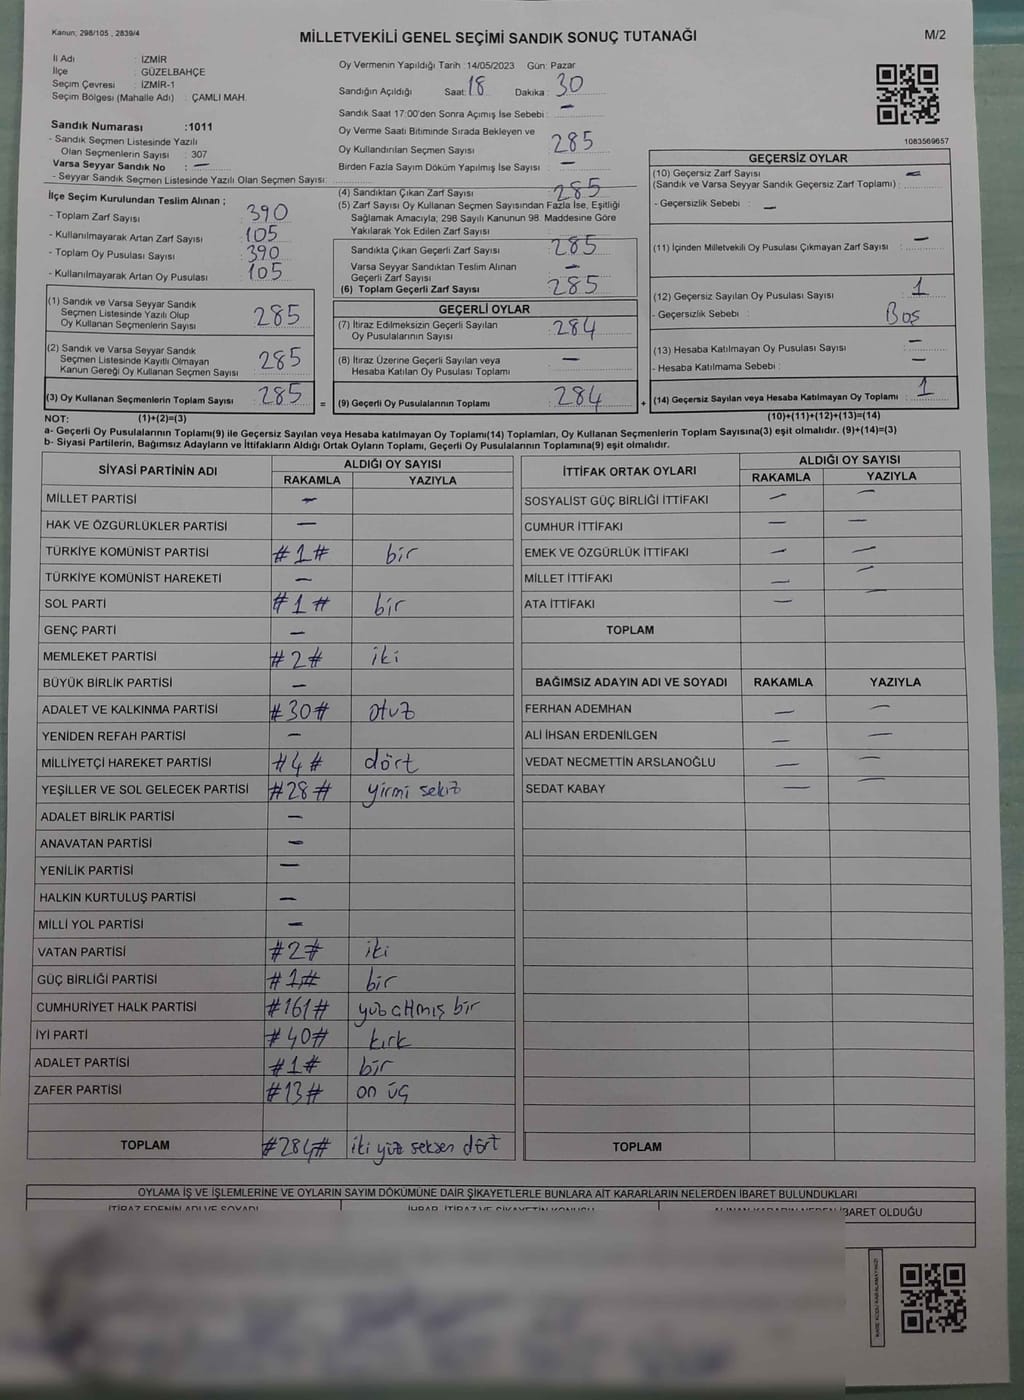 Kanun; 298/105 , 2839/4
MİLLETVEKİLİ GENEL SEÇİMİ SANDIK SONUÇ TUTANAĞI
M/2
İl Adı : İZMİR
İlçe : GÜZELBAHÇE
Seçim Çevresi : İZMİR-1
Seçim Bölgesi (Mahalle Adı) : ÇAMLI MAH.
Sandık Numarası :1011
- Sandık Seçmen Listesinde Yazılı
Olan Seçmenlerin Sayısı : 307
Varsa Seyyar Sandık No : —
- Seyyar Sandık Seçmen Listesinde Yazılı Olan Seçmen Sayısı:
İlçe Seçim Kurulundan Teslim Alınan ;
- Toplam Zarf Sayısı : 390
- Kullanılmayarak Artan Zarf Sayısı : 105
- Toplam Oy Pusulası Sayısı : 390
- Kullanılmayarak Artan Oy Pusulası : 105
(1) Sandık ve Varsa Seyyar Sandık
Seçmen Listesinde Yazılı Olup
Oy Kullanan Seçmenlerin Sayısı 285
(2) Sandık ve Varsa Seyyar Sandık
Seçmen Listesinde Kayıtlı Olmayan
Kanun Gereği Oy Kullanan Seçmen Sayısı 285
(3) Oy Kullanan Seçmenlerin Toplam Sayısı 285
Oy Vermenin Yapıldığı Tarih :14/05/2023 Gün: Pazar
Sandığın Açıldığı Saat: 18 Dakika: 30
Sandık Saat 17:00'den Sonra Açımış İse Sebebi : —
Oy Verme Saati Bitiminde Sırada Bekleyen ve
Oy Kullandırılan Seçmen Sayısı : 285
Birden Fazla Sayım Döküm Yapılmış İse Sayısı : —
(4) Sandıktan Çıkan Zarf Sayısı : 285
(5) Zarf Sayısı Oy Kullanan Seçmen Sayısından Fazla İse, Eşitliği
Sağlamak Amacıyla; 298 Sayılı Kanunun 98. Maddesine Göre
Yakılarak Yok Edilen Zarf Sayısı :
Sandıkta Çıkan Geçerli Zarf Sayısı : 285
Varsa Seyyar Sandıktan Teslim Alınan
Geçerli Zarf Sayısı : —
(6) Toplam Geçerli Zarf Sayısı : 285
GEÇERLİ OYLAR
(7) İtiraz Edilmeksizin Geçerli Sayılan
Oy Pusulalarının Sayısı : 284
(8) İtiraz Üzerine Geçerli Sayılan veya
Hesaba Katılan Oy Pusulası Toplamı : —
= (9) Geçerli Oy Pusulalarının Toplamı : 284 +
1083569657
GEÇERSİZ OYLAR
(10) Geçersiz Zarf Sayısı —
(Sandık ve Varsa Seyyar Sandık Geçersiz Zarf Toplamı) :
- Geçersizlik Sebebi : —
(11) İçinden Milletvekili Oy Pusulası Çıkmayan Zarf Sayısı : —
(12) Geçersiz Sayılan Oy Pusulası Sayısı : 1
- Geçersizlik Sebebi : Boş
(13) Hesaba Katılmayan Oy Pusulası Sayısı : —
- Hesaba Katılmama Sebebi : —
(14) Geçersiz Sayılan veya Hesaba Katılmayan Oy Toplamı : 1
NOT: (1)+(2)=(3) (10)+(11)+(12)+(13)=(14)
a- Geçerli Oy Pusulalarının Toplamı(9) ile Geçersiz Sayılan veya Hesaba katılmayan Oy Toplamı(14) Toplamları, Oy Kullanan Seçmenlerin Toplam Sayısına(3) eşit olmalıdır. (9)+(14)=(3)
b- Siyasi Partilerin, Bağımsız Adayların ve İttifakların Aldığı Ortak Oyların Toplamı, Geçerli Oy Pusulalarının Toplamına(9) eşit olmalıdır.
SİYASİ PARTİNİN ADI
ALDIĞI OY SAYISI
RAKAMLA YAZIYLA
MİLLET PARTİSİ —
HAK VE ÖZGÜRLÜKLER PARTİSİ —
TÜRKİYE KOMÜNİST PARTİSİ #1# bir
TÜRKİYE KOMÜNİST HAREKETİ —
SOL PARTİ #1# bir
GENÇ PARTİ —
MEMLEKET PARTİSİ #2# iki
BÜYÜK BİRLİK PARTİSİ —
ADALET VE KALKINMA PARTİSİ #30# otuz
YENİDEN REFAH PARTİSİ —
MİLLİYETÇİ HAREKET PARTİSİ #4# dört
YEŞİLLER VE SOL GELECEK PARTİSİ #28# yirmi sekiz
ADALET BİRLİK PARTİSİ —
ANAVATAN PARTİSİ —
YENİLİK PARTİSİ —
HALKIN KURTULUŞ PARTİSİ —
MİLLİ YOL PARTİSİ —
VATAN PARTİSİ #2# iki
GÜÇ BİRLİĞİ PARTİSİ #1# bir
CUMHURİYET HALK PARTİSİ #161# yüz atmış bir
İYİ PARTİ #40# kırk
ADALET PARTİSİ #1# bir
ZAFER PARTİSİ #13# on üç
TOPLAM #284# iki yüz seksen dört
İTTİFAK ORTAK OYLARI
ALDIĞI OY SAYISI
RAKAMLA YAZIYLA
SOSYALIST GÜÇ BİRLİĞİ İTTİFAKI — —
CUMHUR İTTİFAKI — —
EMEK VE ÖZGÜRLÜK İTTİFAKI — —
MİLLET İTTİFAKI — —
ATA İTTİFAKI — —
TOPLAM
BAĞIMSIZ ADAYIN ADI VE SOYADI RAKAMLA YAZIYLA
FERHAN ADEMHAN — —
ALİ İHSAN ERDENİLGEN — —
VEDAT NECMETTİN ARSLANOĞLU — —
SEDAT KABAY — —
TOPLAM
OYLAMA İŞ VE İŞLEMLERİNE VE OYLARIN SAYIM DÖKÜMÜNE DAİR ŞİKAYETLERLE BUNLARA AİT KARARLARIN NELERDEN İBARET BULUNDUKLARI
İTİRAZ EDENİN ADI VE SOYADI
İHBAR, İTİRAZ VE ŞİKAYETİN KONUSU
ALINAN KARARIN NEDEN İBARET OLDUĞU